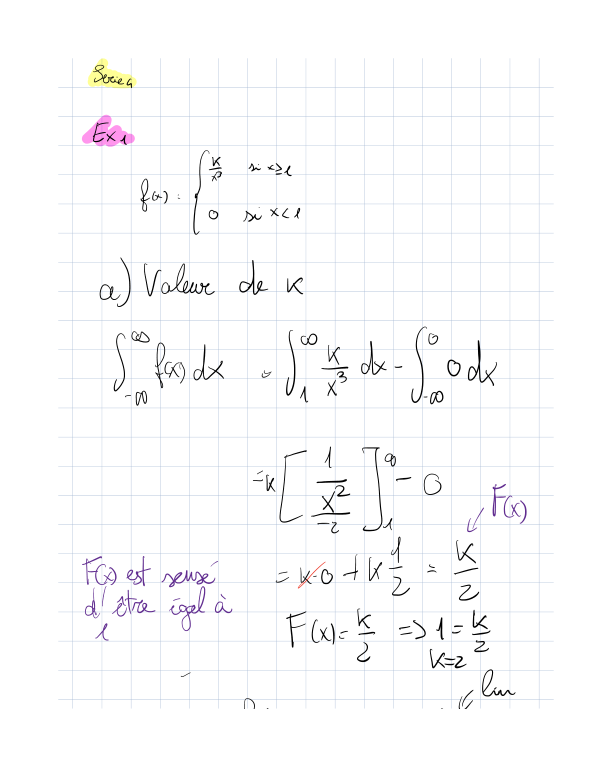 Serie 4
Ex 1
f(x) = { k/x³ si x≥1
0 si x<1
a) Valeur de k
∫_{-∞}^{∞} f(x) dx = ∫_1^∞ k/x³ dx - ∫_{-∞}^0 0 dx
= k [ 1/x²/-2 ]_1^∞ - 0
F(x)
= k·0 + k 1/2 = k/2
F(x) est sensé
d'être égel à
1
F(x) = k/2 => 1 = k/2
k=2
lim